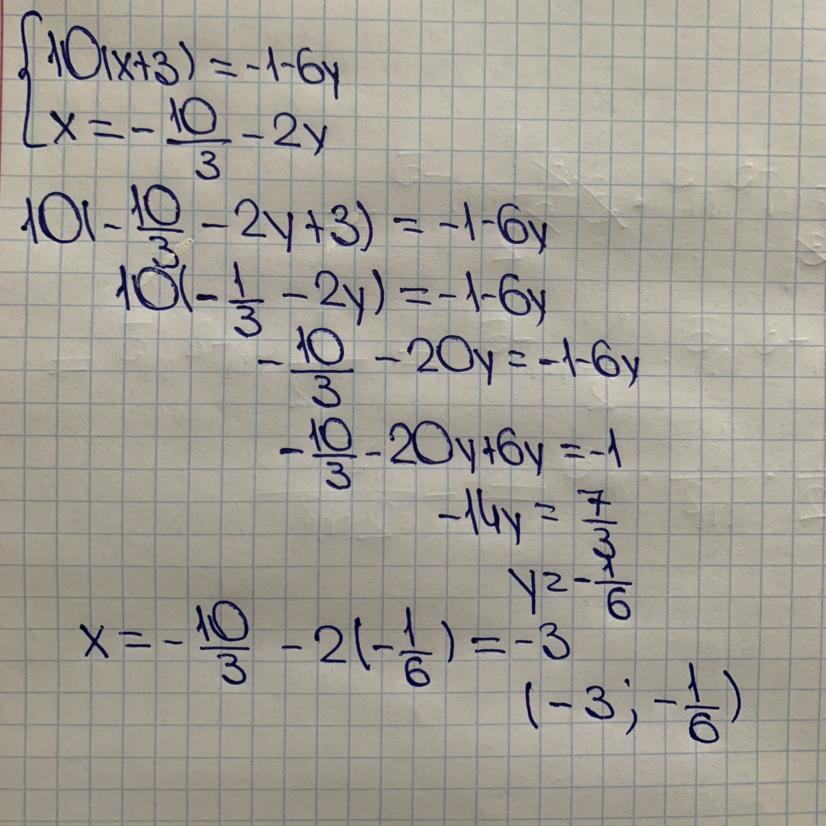 {10(x+3) = -1-6y
x = -10/3 - 2y
10(-10/3 - 2y+3) = -1-6y
10(-1/3 - 2y) = -1-6y
-10/3 - 20y = -1-6y
-10/3 - 20y+6y = -1
-14y = 7/3
y = -1/6
x = -10/3 - 2(-1/6) = -3
(-3; -1/6)